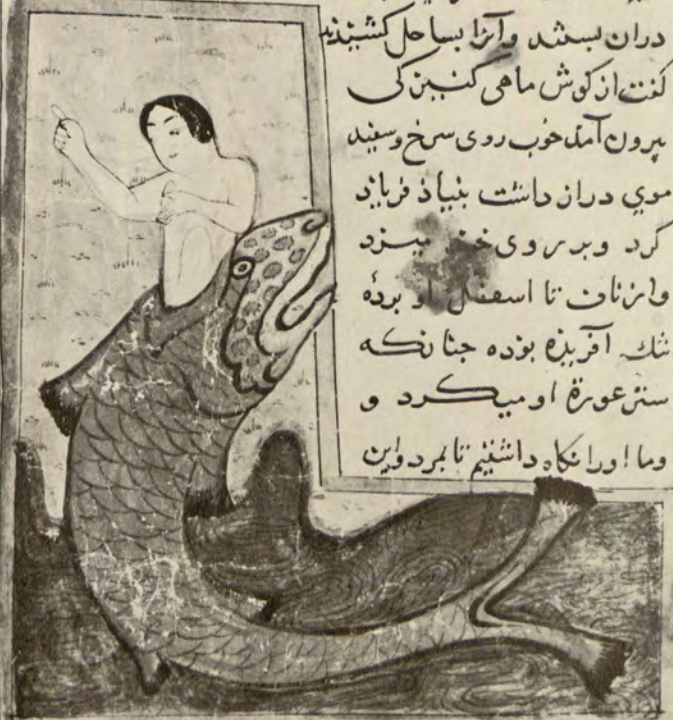 دران بستند وآنرا بساحل کشیدند
گفت از کوش ماهی کنیزکی
بیرون آمد خوب روی سرخ وسفید
موی دران داشت بنیاد فریاد
کرد وبر روی خود میزد
واز ناف تا اسفل او پرده
تنك آفریذه بوذه جنانکه
ستر عورة او میکرد و
وما اورا نکاه داشتیم تا بمرد واین